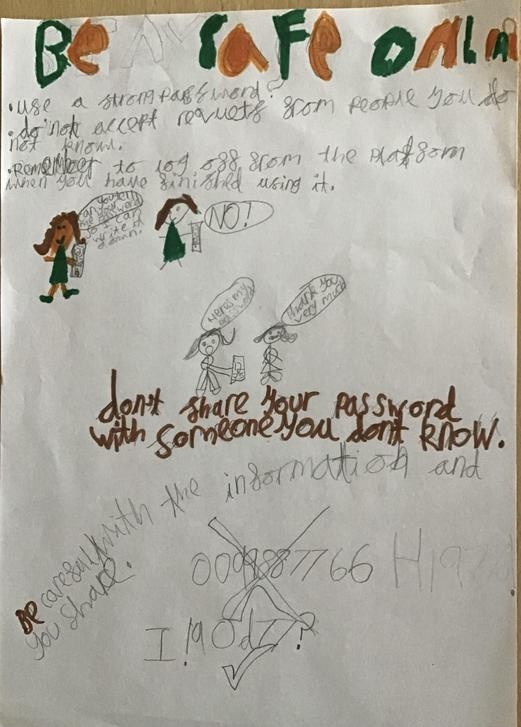 Be Safe Onlin
• use a strong password?
• do not accept requets from people you do
not know.
• Remember to log off from the platform
when you have finished using it.
can you tell
me your password
so I can
write it
down.
NO!
Here's my
password
Thank you
very much
don't share your password
with someone you dont know.
Be careful with the information and
you share.
0099887766 H197
I!90d7?